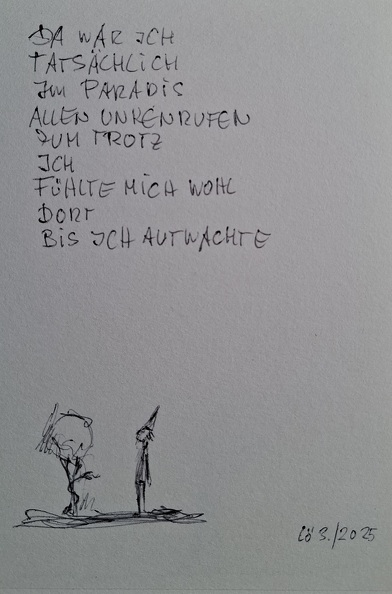 DA WAR ICH
TATSÄCHLICH
IM PARADIS
ALLEN UNKENRUFEN
ZUM TROTZ
ICH
FÜHLTE MICH WOHL
DORT
BIS ICH AUFWACHTE
Lö 3./2025